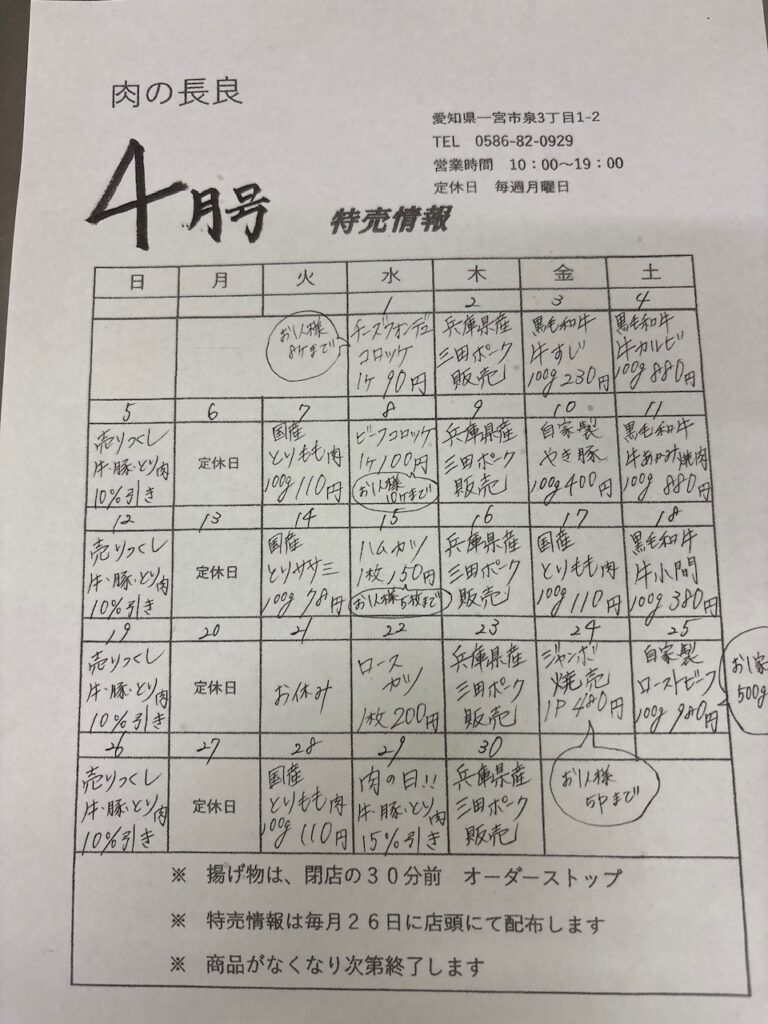 肉の長良
愛知県一宮市泉3丁目1-2
TEL 0586-82-0929
営業時間 10：00～19：00
定休日 毎週月曜日
4月号
特売情報
日 月 火 水 木 金 土
1 2 3 4
お1人様
8ケまで
チーズフォンデュ
コロッケ
1ケ 90円
兵庫県産
三田ポーク
販売
黒毛和牛
牛すじ
100g 230円
黒毛和牛
牛カルビ
100g 880円
5 6 7 8 9 10 11
売りつくし
牛・豚・とり肉
10%引き
定休日
国産
とりもも肉
100g 110円
ビーフコロッケ
1ケ100円
お1人様
10ケまで
兵庫県産
三田ポーク
販売
自家製
やき豚
100g 400円
黒毛和牛
牛あかみ焼肉
100g 880円
12 13 14 15 16 17 18
売りつくし
牛・豚・とり肉
10%引き
定休日
国産
とりササミ
100g 78円
ハムカツ
1枚 150円
お1人様5枚まで
兵庫県産
三田ポーク
販売
国産
とりもも肉
100g 110円
黒毛和牛
牛小間
100g 380円
19 20 21 22 23 24 25
売りつくし
牛・豚・とり肉
10%引き
定休日
お休み
ロース
カツ
1枚 200円
兵庫県産
三田ポーク
販売
ジャンボ
焼売
1P 480円
自家製
ローストビーフ
100g 980円
お1家
500g
26 27 28 29 30
売りつくし
牛・豚・とり肉
10%引き
定休日
国産
とりもも肉
100g 110円
肉の日!!
牛・豚・とり肉
15%引き
兵庫県産
三田ポーク
販売
お1人様
5Pまで
※ 揚げ物は、閉店の３０分前 オーダーストップ
※ 特売情報は毎月２６日に店頭にて配布します
※ 商品がなくなり次第終了します